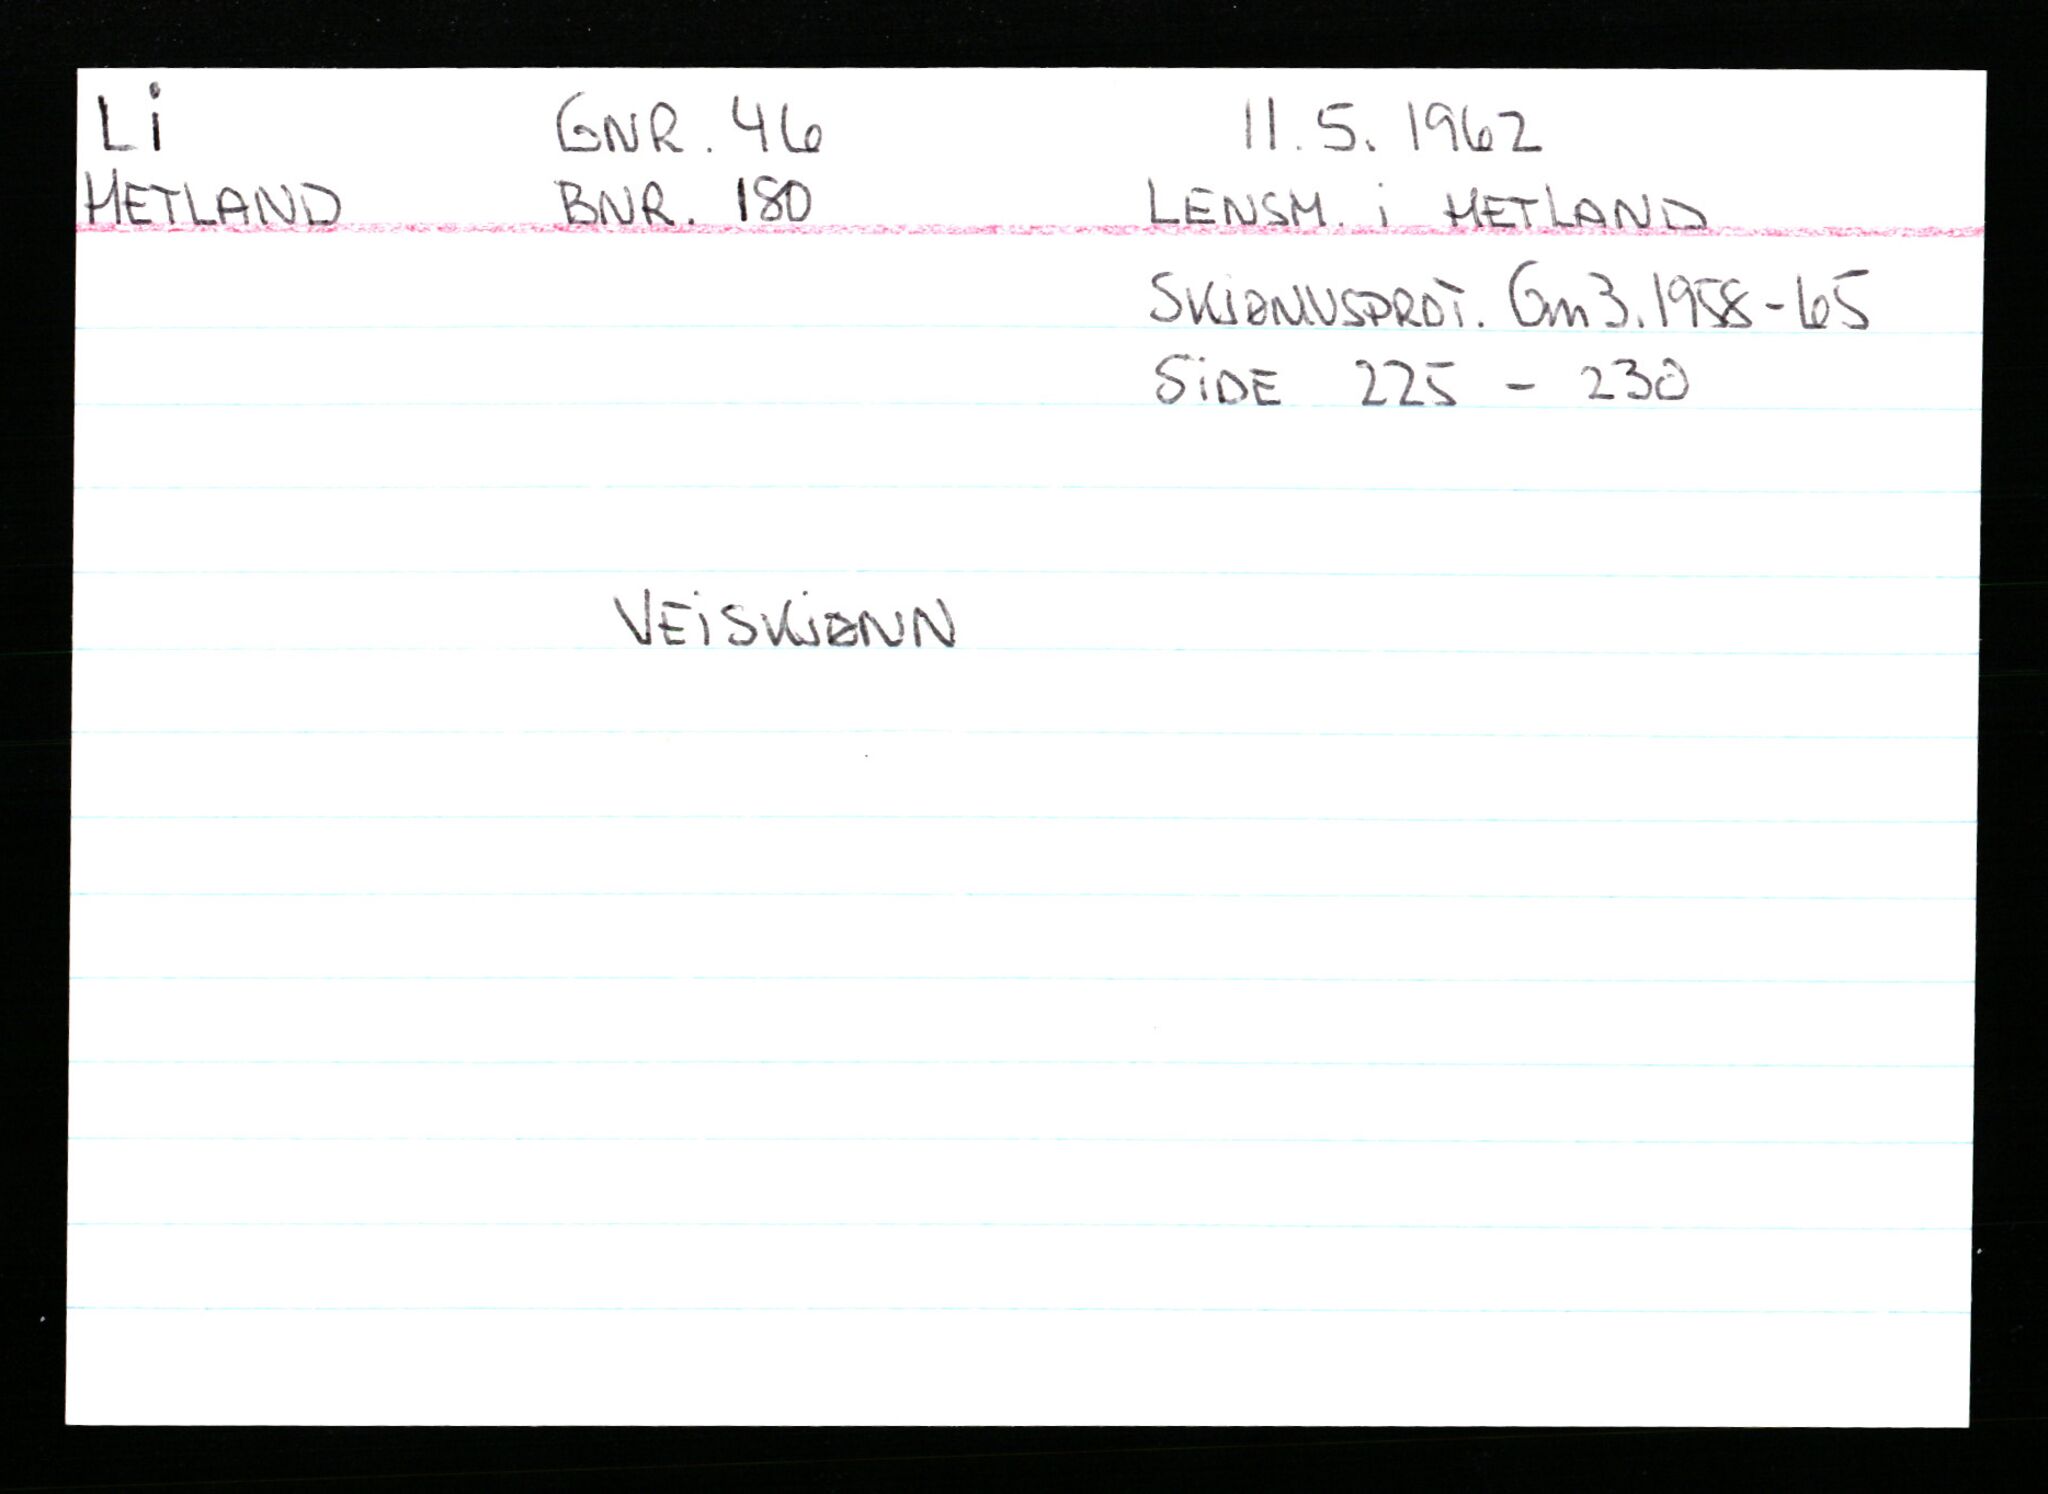 Li GNR. 46 11.5.1962
HETLAND BNR. 180 LENSM. i HETLAND
SKJØNNSPROT. Gm3.1958-65
SiDE 225 - 230
VEiSKJØNN